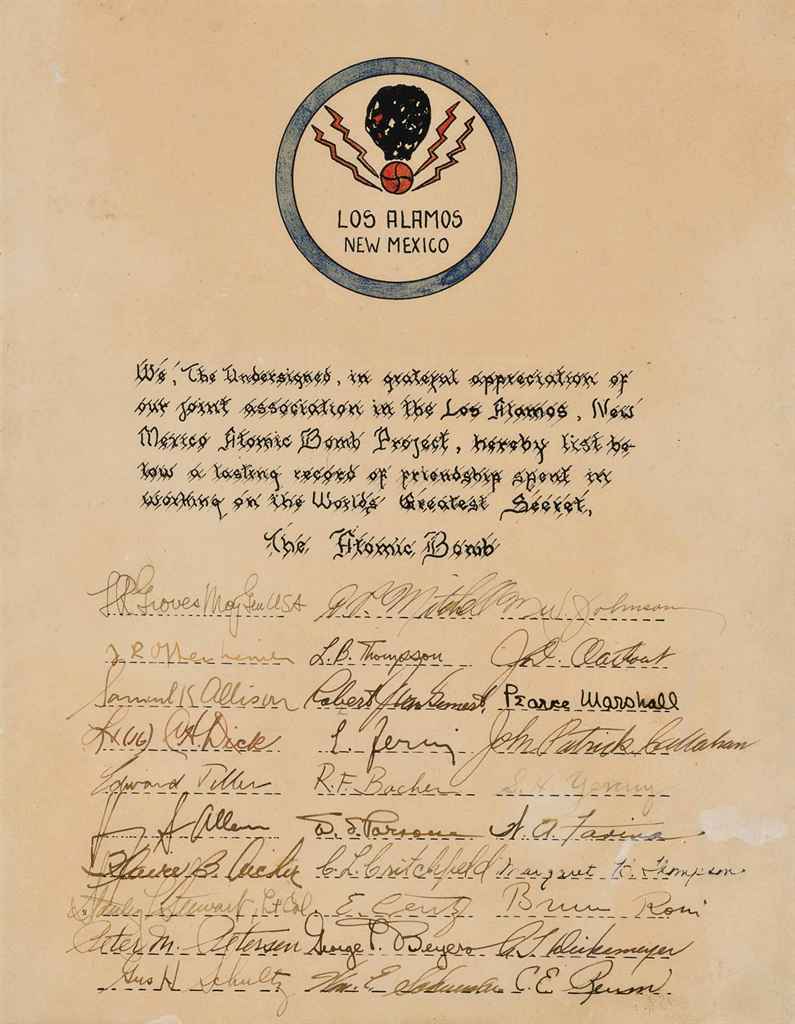 LOS ALAMOS
NEW MEXICO
We, The Undersigned, in grateful appreciation of
our joint association in the Los Alamos, New
Mexico Atomic Bomb Project, hereby list be-
low a lasting record of friendship spent in
working on the World's Greatest Secret,
The Atomic Bomb
LR Groves Maj Gen USA Johnson
J R Oppenheimer L.B. Thompson
Samuel K Allison Robert J Van Gemert, Pearce Marshall
Dick E. Fermi John Patrick Callahan
Edward Teller R.F. Bacher
Allen W. S. Parsons
B. C L Critchfield Margaret K. Thompson
Stewart, Lt Col. E
Peter M. Petersen George P. Beyers
Gus H Schultz Wm. E. C. E.